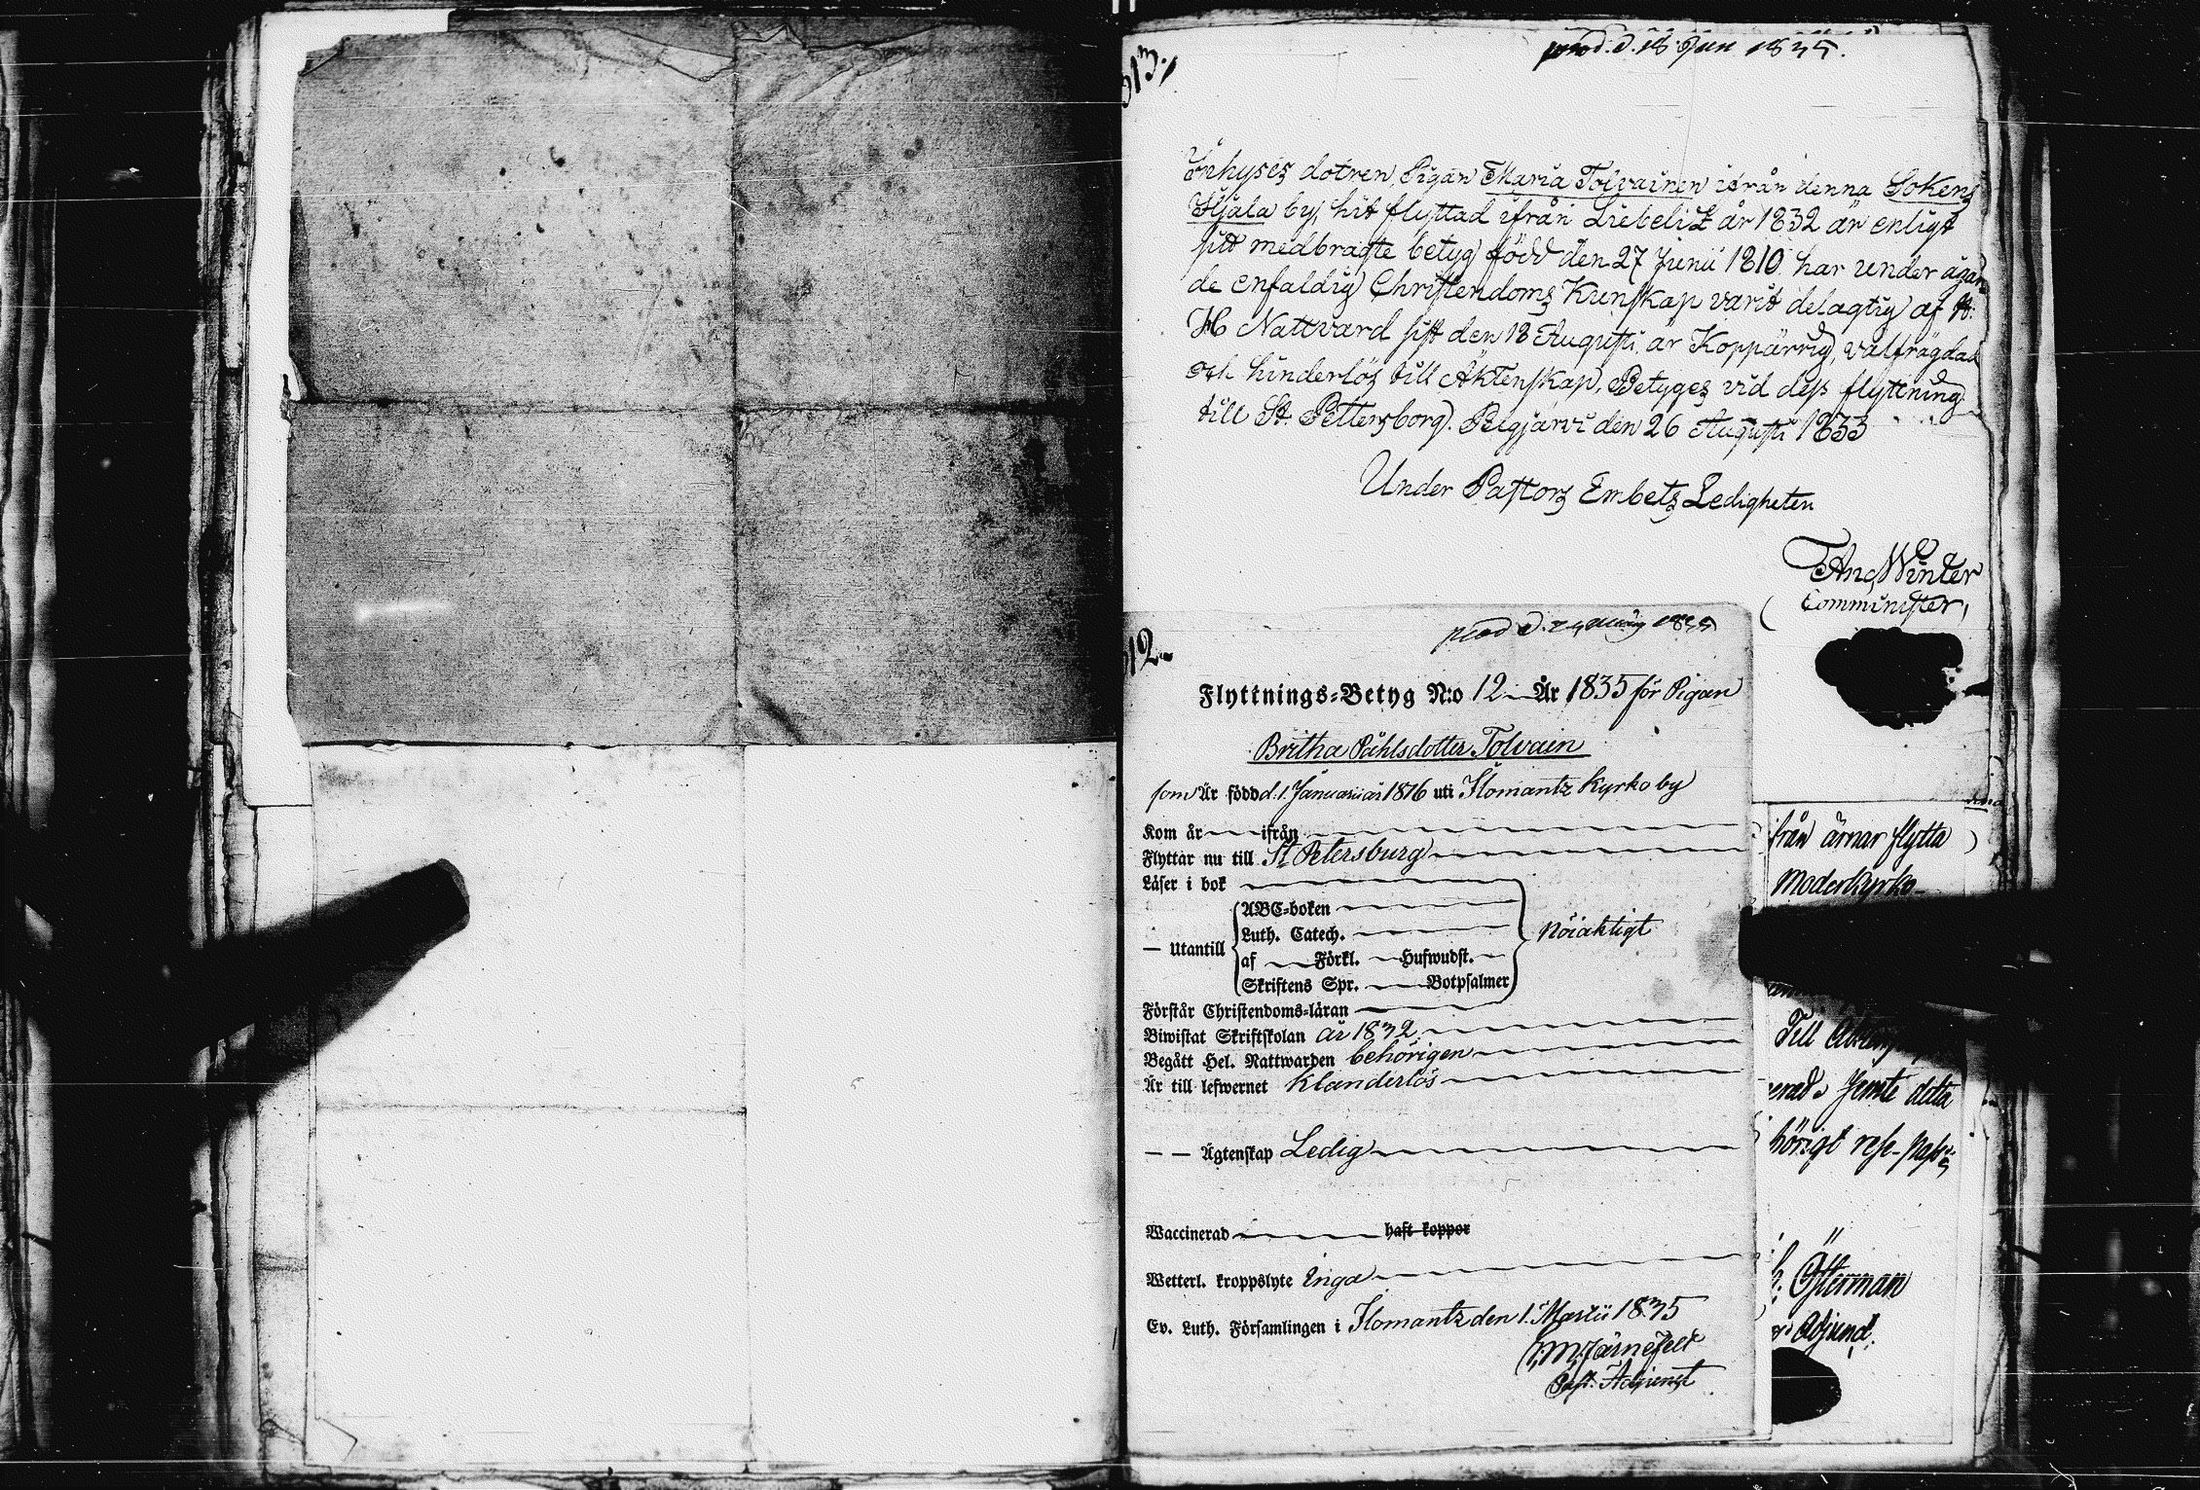 313.
prod. d. 18 Jun 1835.
Inhyses dotren, Pigan Maria Tolvainen ifrån denna Sokens
by, hit flyttad ifrån Liebelitz år 1832 är enligt
sitt medbragte betyg född den 27 Junii 1810. har under ägan-
de enfaldig Christendoms Kunskap varit delagtig af
H Nattvard sist den 18 Augusti, är Koppärrig, välfrägdad
och hinderlös till Äktenskap, Betyges vid dess flyttning
till St. Pettersborg. Pelgjärvi den 26 Augusti 1833
Under Pastors Embets Ledigheten
And Winter
Comminister,
312.
prod d. 1835
Flyttnings-Betyg N:o 12 År 1835 för Pigan
Britha Påhlsdotter Tolvain
som Är född d. 1. Januarii år 1816 uti Ilomantz Kyrko by
Kom år ifrån
Flyttar nu till St Petersburg
Läser i bok
— Utantill
ABC-boken
Luth. Catech.
af Förkl. Hufwudst.
Skriftens Spr. Botpsalmer
nöiaktigt
Förstår Christendoms-läran
Biwistat Skriftskolan år 1832
Begått Hel. Nattwarden behörigen
Är till lefwernet klanderlös
— — Ägtenskap Ledig
Waccinerad haft koppor
Wetterl. kroppslyte Inga
Ev. Luth. Församlingen i Ilomantz den 1. Martii 1835
Järnefelt
Past. Adjunct
från ärnar flytta
Moderkyrko-
Till
Jemte detta
hörigt rese-pass
Österman
Adjund.